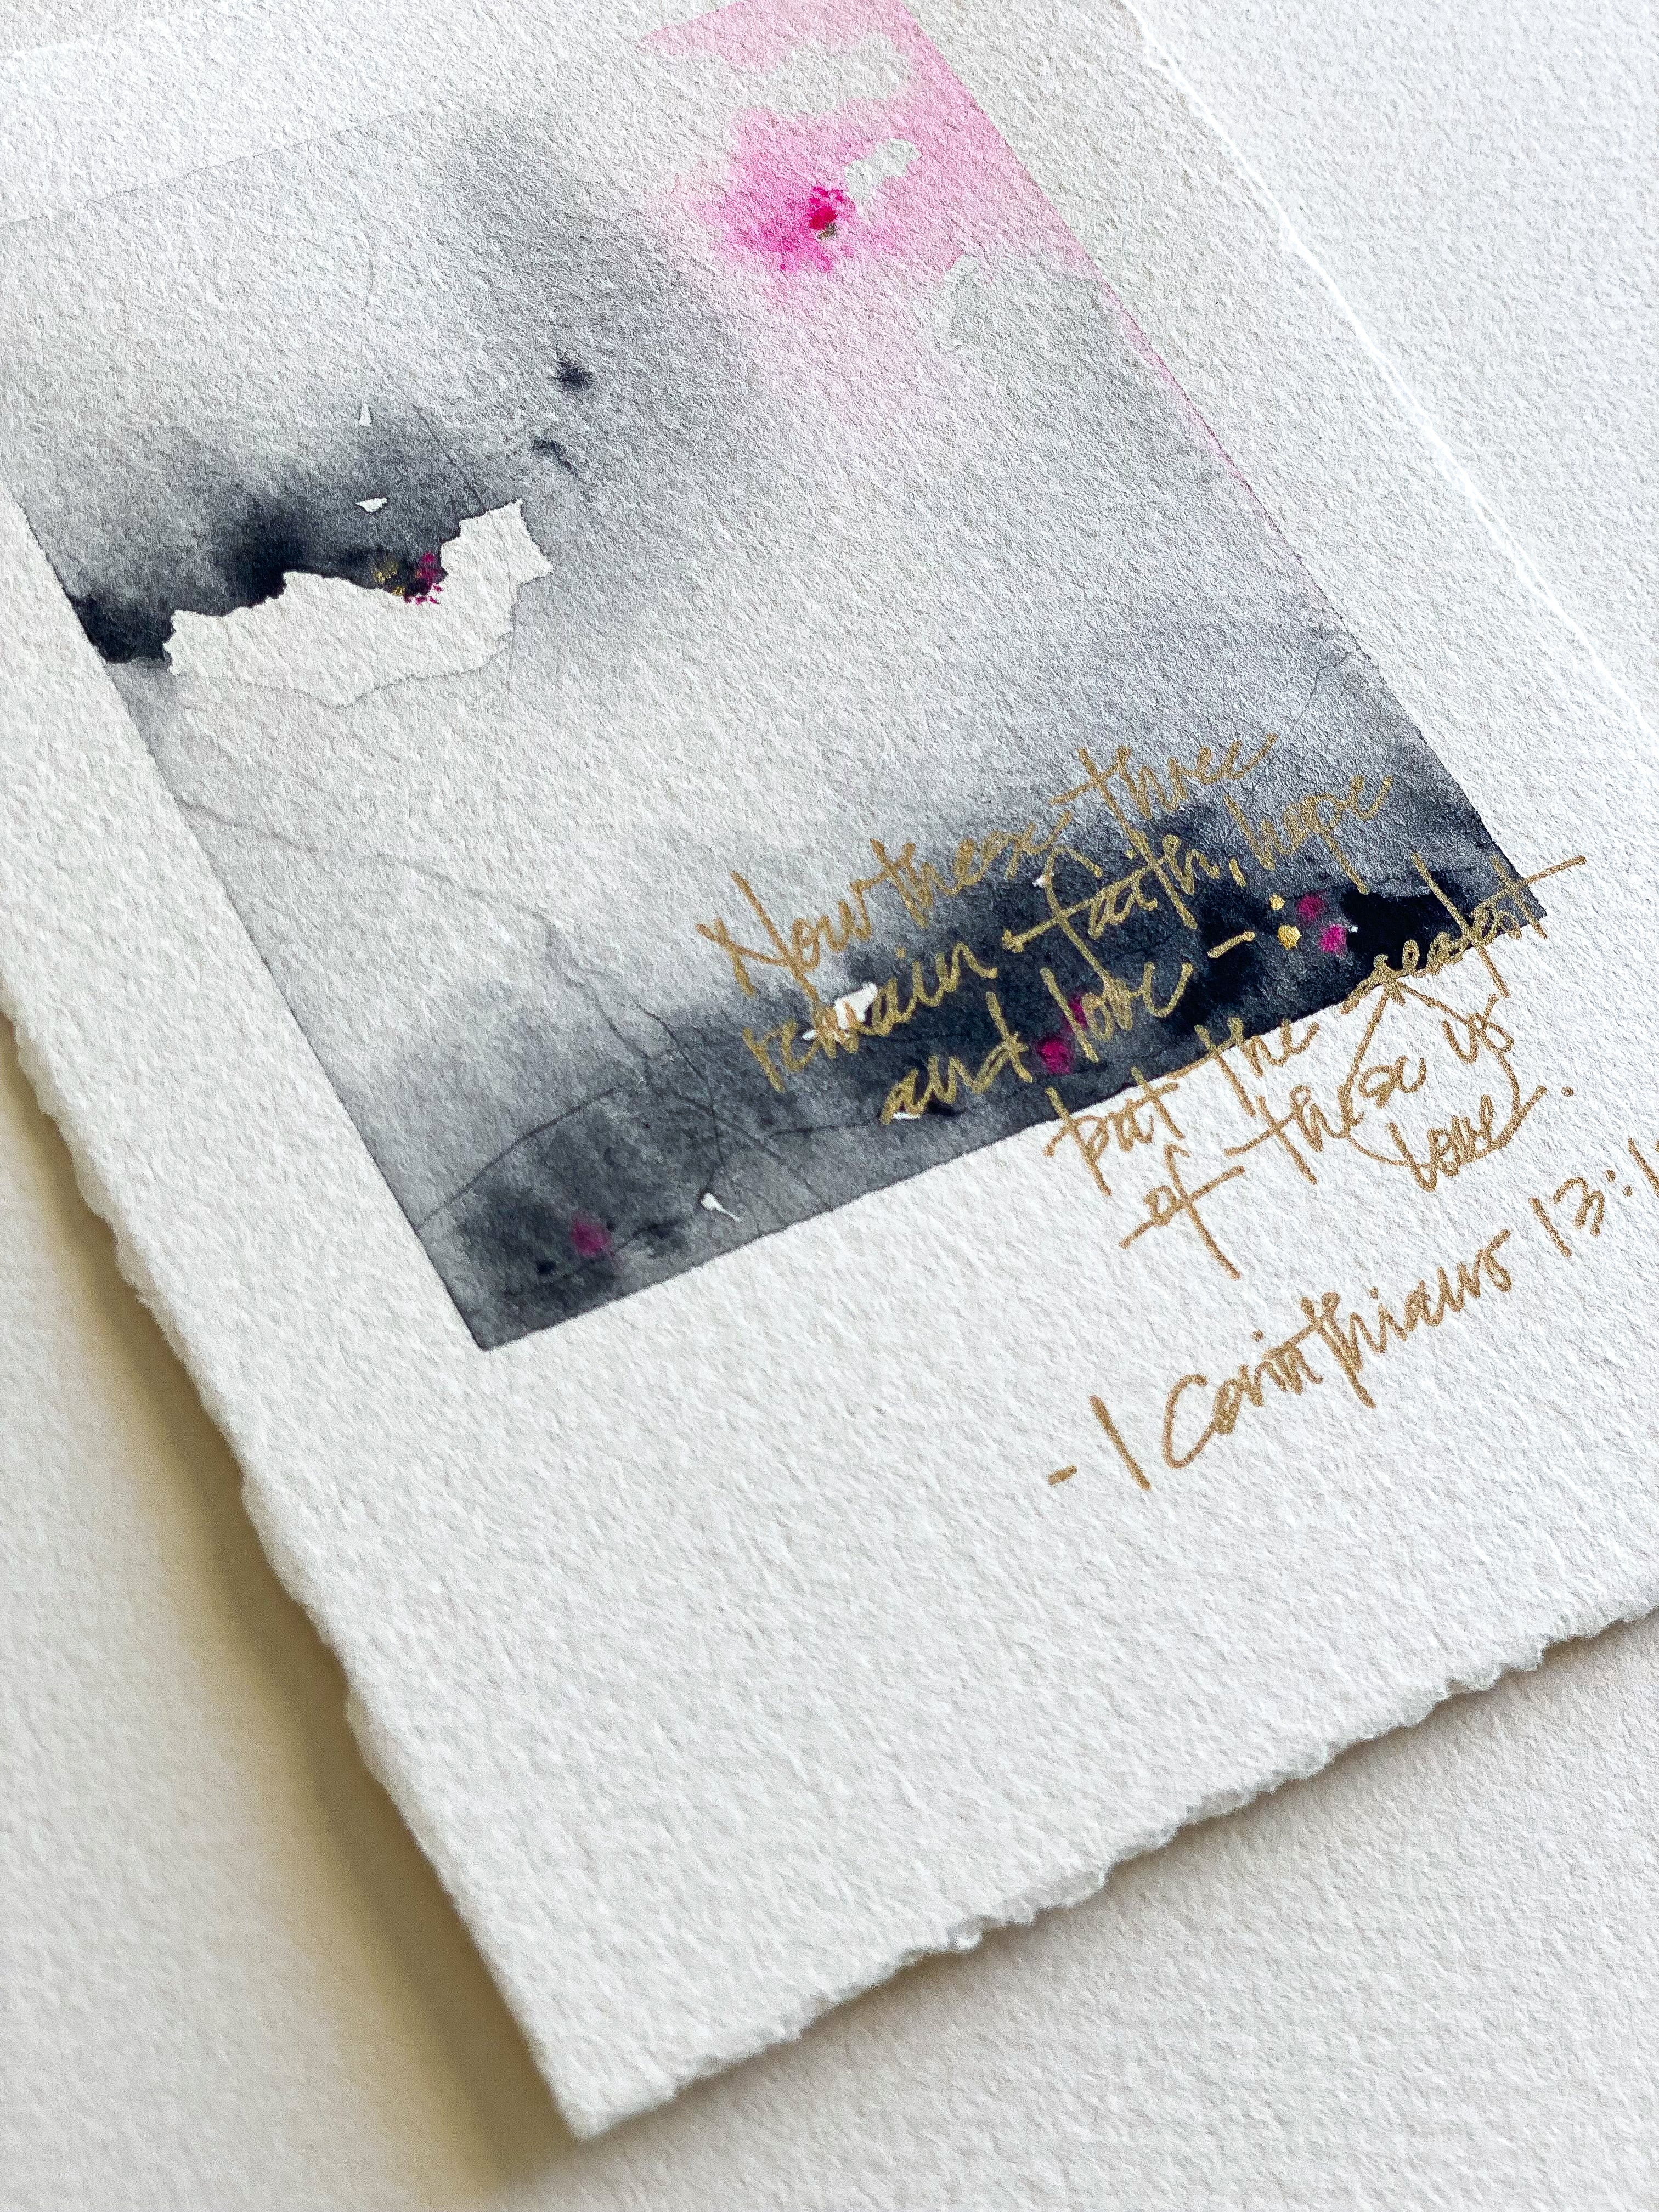 Now these three
remain - faith, hope
and love -
but the greatest
of these is
love.
- 1 Corinthians 13:1